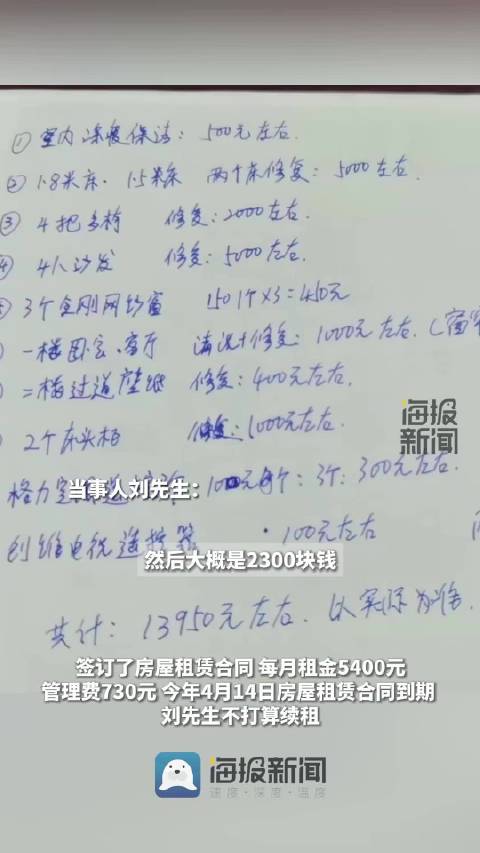 ① 室内深度保洁：500元左右.
② 1.8米床. 1.5米床 两个床修复：5000左右.
③ 4把乡椅 修复：2000左右.
④ 4人沙发 修复：5000左右.
3个金刚网纱窗 150个×3=450元
一楼卧室、客厅 清洗+修复：1000元左右.(窗
二楼过道壁纸 修复：400元左右.
2个床头柜 修复：1000元左右.
海报新闻
格力空 100元每个：3个：300元左右.
当事人刘先生：
创维电视遥控器 . 100元左右
然后大概是2300块钱
共计：13950元左右. 以实际为准.
签订了房屋租赁合同 每月租金5400元
管理费730元 今年4月14日房屋租赁合同到期
刘先生不打算续租
海报新闻
速度·深度·温度